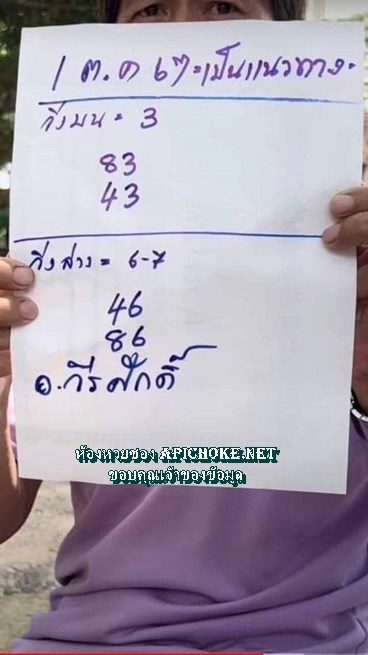 1 ต.ค 67=เป็นแนวทาง=
วิ่งบน = 3
83
43
วิ่งล่าง = 6-7
46
86
อ.วีรศักดิ์
ห้องหวยซอง APICHOKE.NET
ขอบคุณเจ้าของข้อมูล